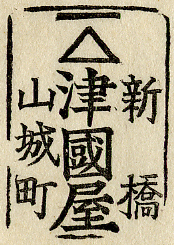 新橋
津國屋
山城町